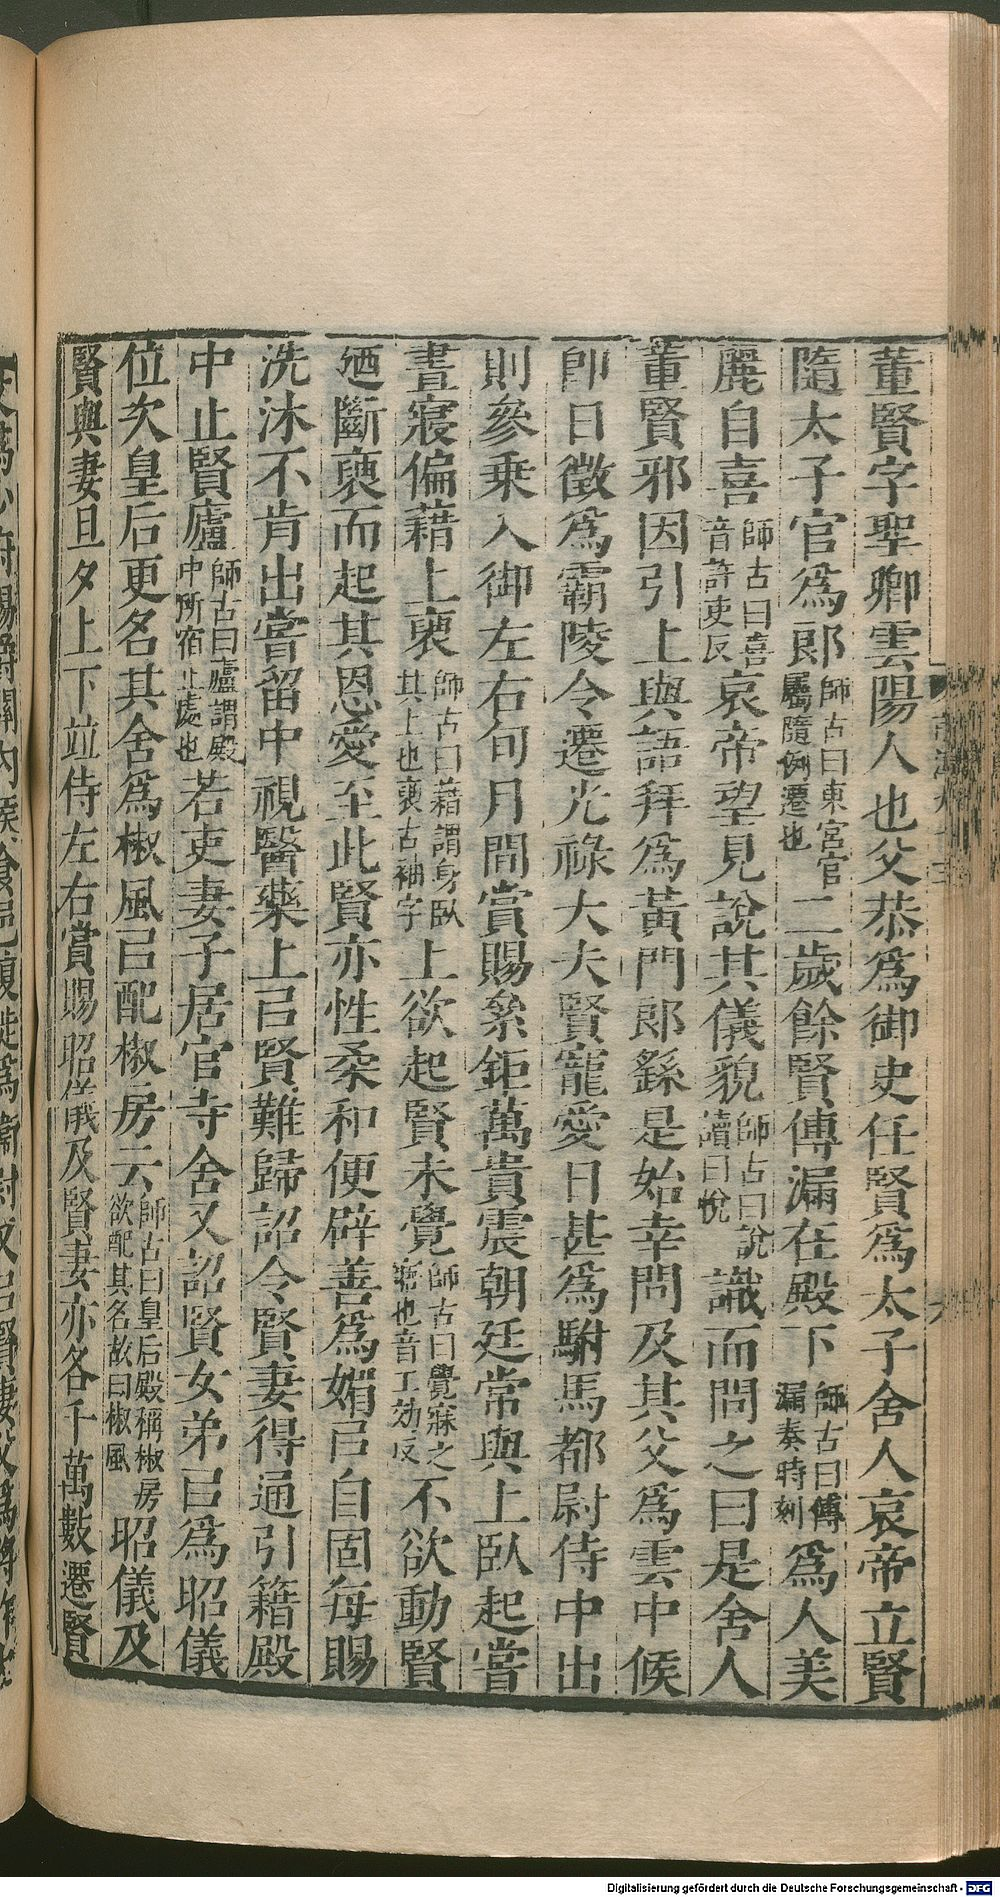 董賢字聖卿雲陽人也父恭爲御史任賢爲太子舍人哀帝立賢
隨太子官爲郎師古曰東宮官屬隨例遷也二歲餘賢傳漏在殿下師古曰傳漏奏時刻爲人美
麗自喜師古曰喜音許吏反哀帝望見說其儀貌師古曰說讀曰悅識而問之曰是舍人
董賢邪因引上與語拜爲黃門郎繇是始幸問及其父爲雲中候
卽日徵爲霸陵令遷光祿大夫賢寵愛日甚爲駙馬都尉侍中出
則參乗入御左右旬月間賞賜絫鉅萬貴震朝廷常與上臥起嘗
晝寢偏藉上褏師古曰藉謂身臥其上也褏古袖字上欲起賢未覺師古曰覺寐之寤也音工効反不欲動賢
廼斷褏而起其恩愛至此賢亦性柔和便辟善爲媚㠯自固每賜
洗沐不肯出嘗留中視醫藥上㠯賢難歸詔令賢妻得通引籍殿
中止賢廬師古曰廬謂殿中所宿止處也若吏妻子居官寺舍又詔賢女弟㠯爲昭儀
位次皇后更名其舍爲椒風㠯配椒房云師古曰皇后殿稱椒房欲配其名故曰椒風昭儀及
賢與妻旦夕上下竝侍左右賞賜昭儀及賢妻亦各千萬數遷賢
Digitalisierung gefördert durch die Deutsche Forschungsgemeinschaft - DFG